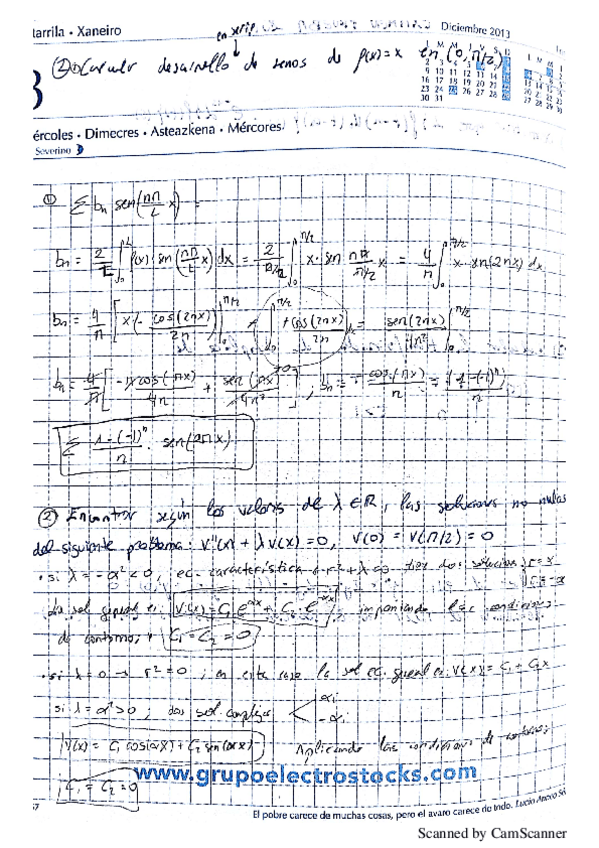 Marrila • Xaneiro
Diciembre 2013
en serie
② Calcular desarrollo de senos de f(x)=x en (0, π/2)
3
M M J V S D
9 10 11 12 13 14 15
16 17 18 19 20 21 22
23 24 25 26 27 28 29
30 31
ércoles • Dimecres • Asteazkena • Mércores
Severino
① Σ bn sen(nπ/L x) =
bn = 2/L ∫₀^L f(x) sen(nπ/L x) dx = 2/(π/2) ∫₀^π/2 x · sen nπ/(π/2) x = 4/π ∫₀^π/2 x · sen(2nx) dx
bn = 4/π [x(- cos(2nx)/2n)]₀^π/2 + ∫₀^π/2 +cos(2nx)/2n = sen(2nx)/4n² ]₀^π/2
bn = 4/π [ -π cos(πx)/4n + sen(πx)/4n² ], bn = - cos(πx)/n = (1-(-1)ⁿ)/n
Σ 1-(-1)ⁿ/n · sen(2nx)
② Encontrar según los valores de λ∈ℝ, las soluciones no nulas
del siguiente problema: V''(x) + λ V(x) = 0, V(0) = V(π/2) = 0
· si λ = -α² < 0, ec. característica r² + λ = 0 dos soluciones r = α
r = -α
La sol general es: V(x) = C₁ e^αx + C₂ e^-αx, imponiendo las condiciones
de contorno, C₁ = C₂ = 0
· si λ = 0 → r² = 0; en este caso la sol ec. gneral es: V(x) = C₁ + C₂x
si λ = α² > 0; dos sol complejas αi
-αi
V(x) = C₁ cos(αx) + C₂ sen(αx) Aplicando las condiciones de contorno,
C₁ = C₂ = 0
www.grupoelectrostocks.com
El pobre carece de muchas cosas, pero el avaro carece de todo.
Scanned by CamScanner